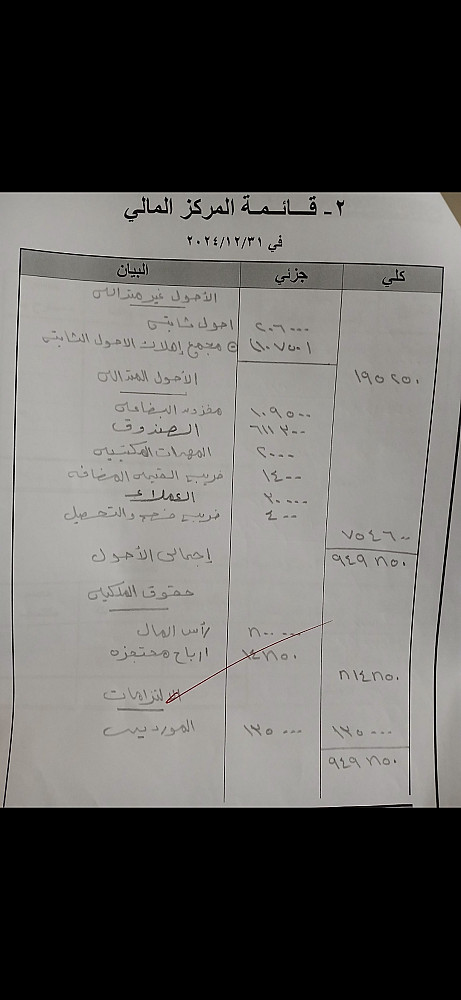 ٢ - قــائـمـة المركز المالي
في ٢٠٢٤/١٢/٣١
كلي جزئي البيان
الأصول غير متداوله
اصول ثابته ٢٠٦٠٠٠
مجمع إهلاك الاصول الثابته (١٠٧٥٠)
١٩٥٢٥٠
الأصول المتداوله
مخزون البضاعه ١٠٩٥٠٠
الصندوق ٦١١٣٠٠
المهمات المكتبيه ٢٠٠٠
ضريبه القيمه المضافه ١٤٠٠
العملاء ٣٠٠٠٠
ضريبه خصم والتحصيل ٤٠٠
٧٥٤٦٠٠
إجمالى الأصول ٩٤٩٨٥٠
حقوق الملكيه
رأس المال ٨٠٠٠٠٠
ارباح محتجزه ١٤٨٥٠
٨١٤٨٥٠
الالتزامات
الموردين ١٣٥٠٠٠ ١٣٥٠٠٠
٩٤٩٨٥٠